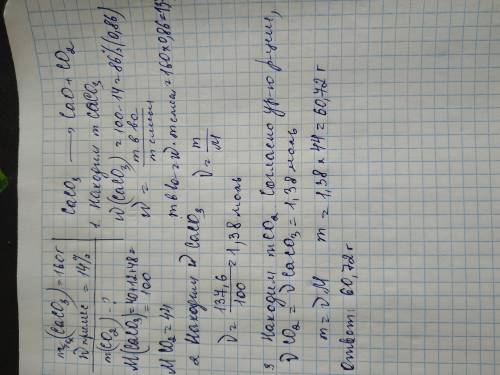 m (CaCO₃) = 160 г
ω примес = 14%
m(CO₂) - ?
M(CaCO₃) = 40+12+48=
= 100
M CO₂ = 44
CaCO₃ ⟶ CaO + CO₂
1. Находим m CaCO₃
ω (CaCO₃) = 100-14 = 86% (0,86)
ω = m в ва / m смеси
m в ва = ω · m смеси = 160 × 0,86 =
2 Находим ν CaCO₃ ν = m / M
ν = 137,6 / 100 = 1,38 моль
3 Находим m CO₂ Согласно ур-ю р-ции,
ν CO₂ = ν CaCO₃ = 1,38 моль
m = ν M m = 1,38 × 44 = 60,72 г
Ответ: 60,72 г